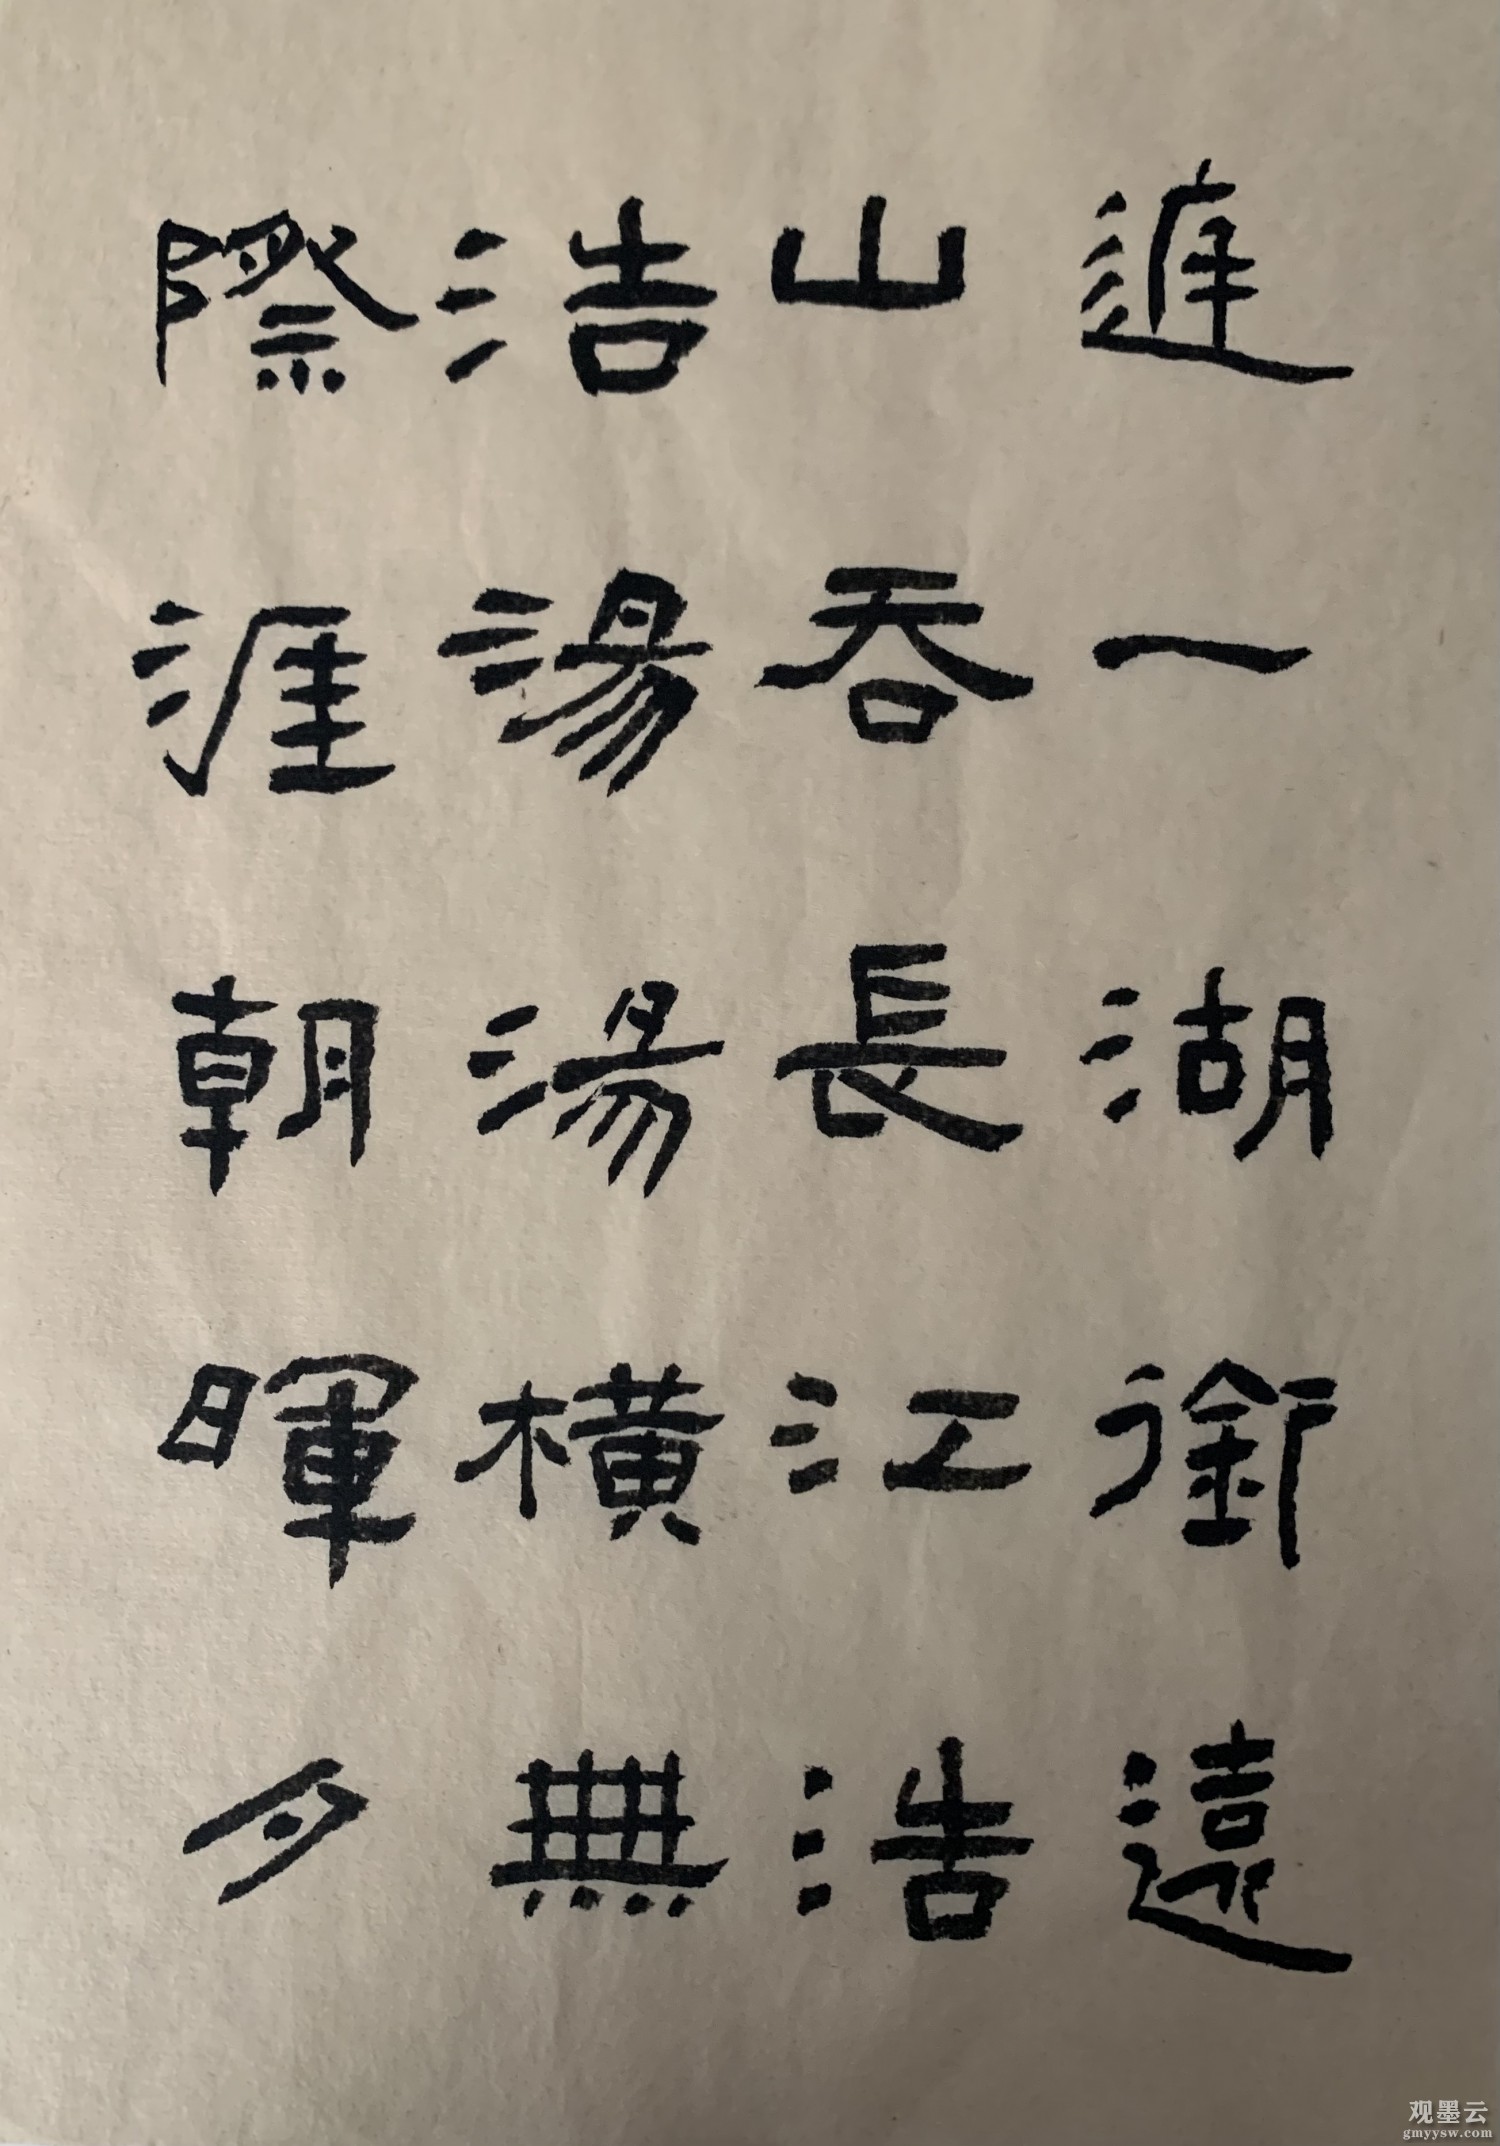 庭一湖銜遠
山吞長江浩
浩湯湯橫無
際涯朝暉夕
观墨云
gmyysw.com